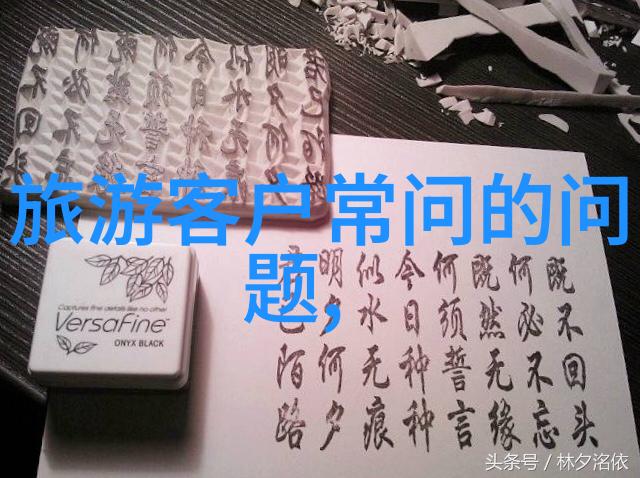 旅游客户常问的问
题,
VersaFine
Captures fine details like no other
ONYX BLACK
既不回头
何必不忘
既然无缘
何须誓言
今日种种
似水无痕
明夕何夕
君已陌路
头条号 / 林夕洺依